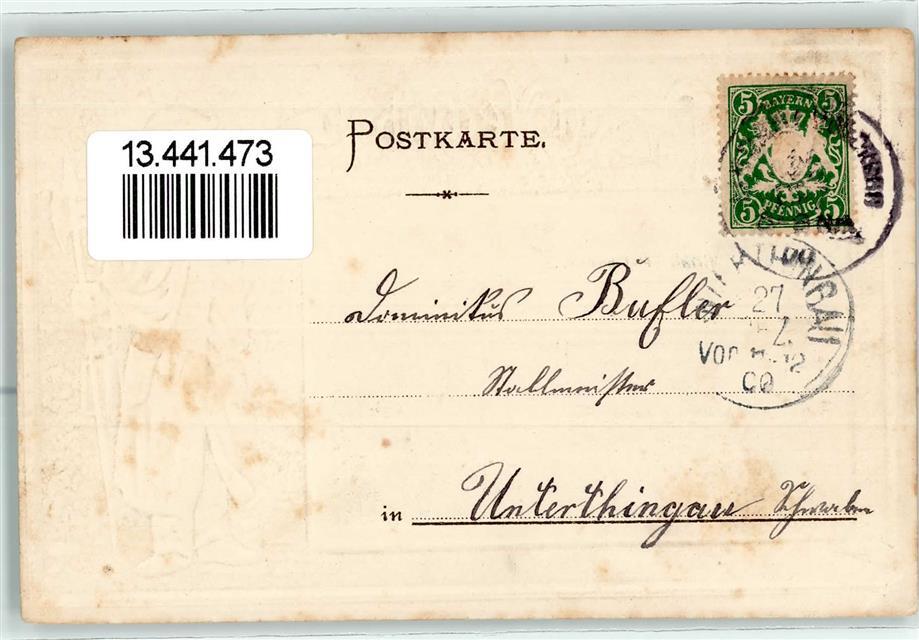 13.441.473
POSTKARTE.
5 BAYERN 5
5 PFENNIG 5
27
VOR
Dominikus Bufler
Stallmeister
in Unterthingau Schwaben